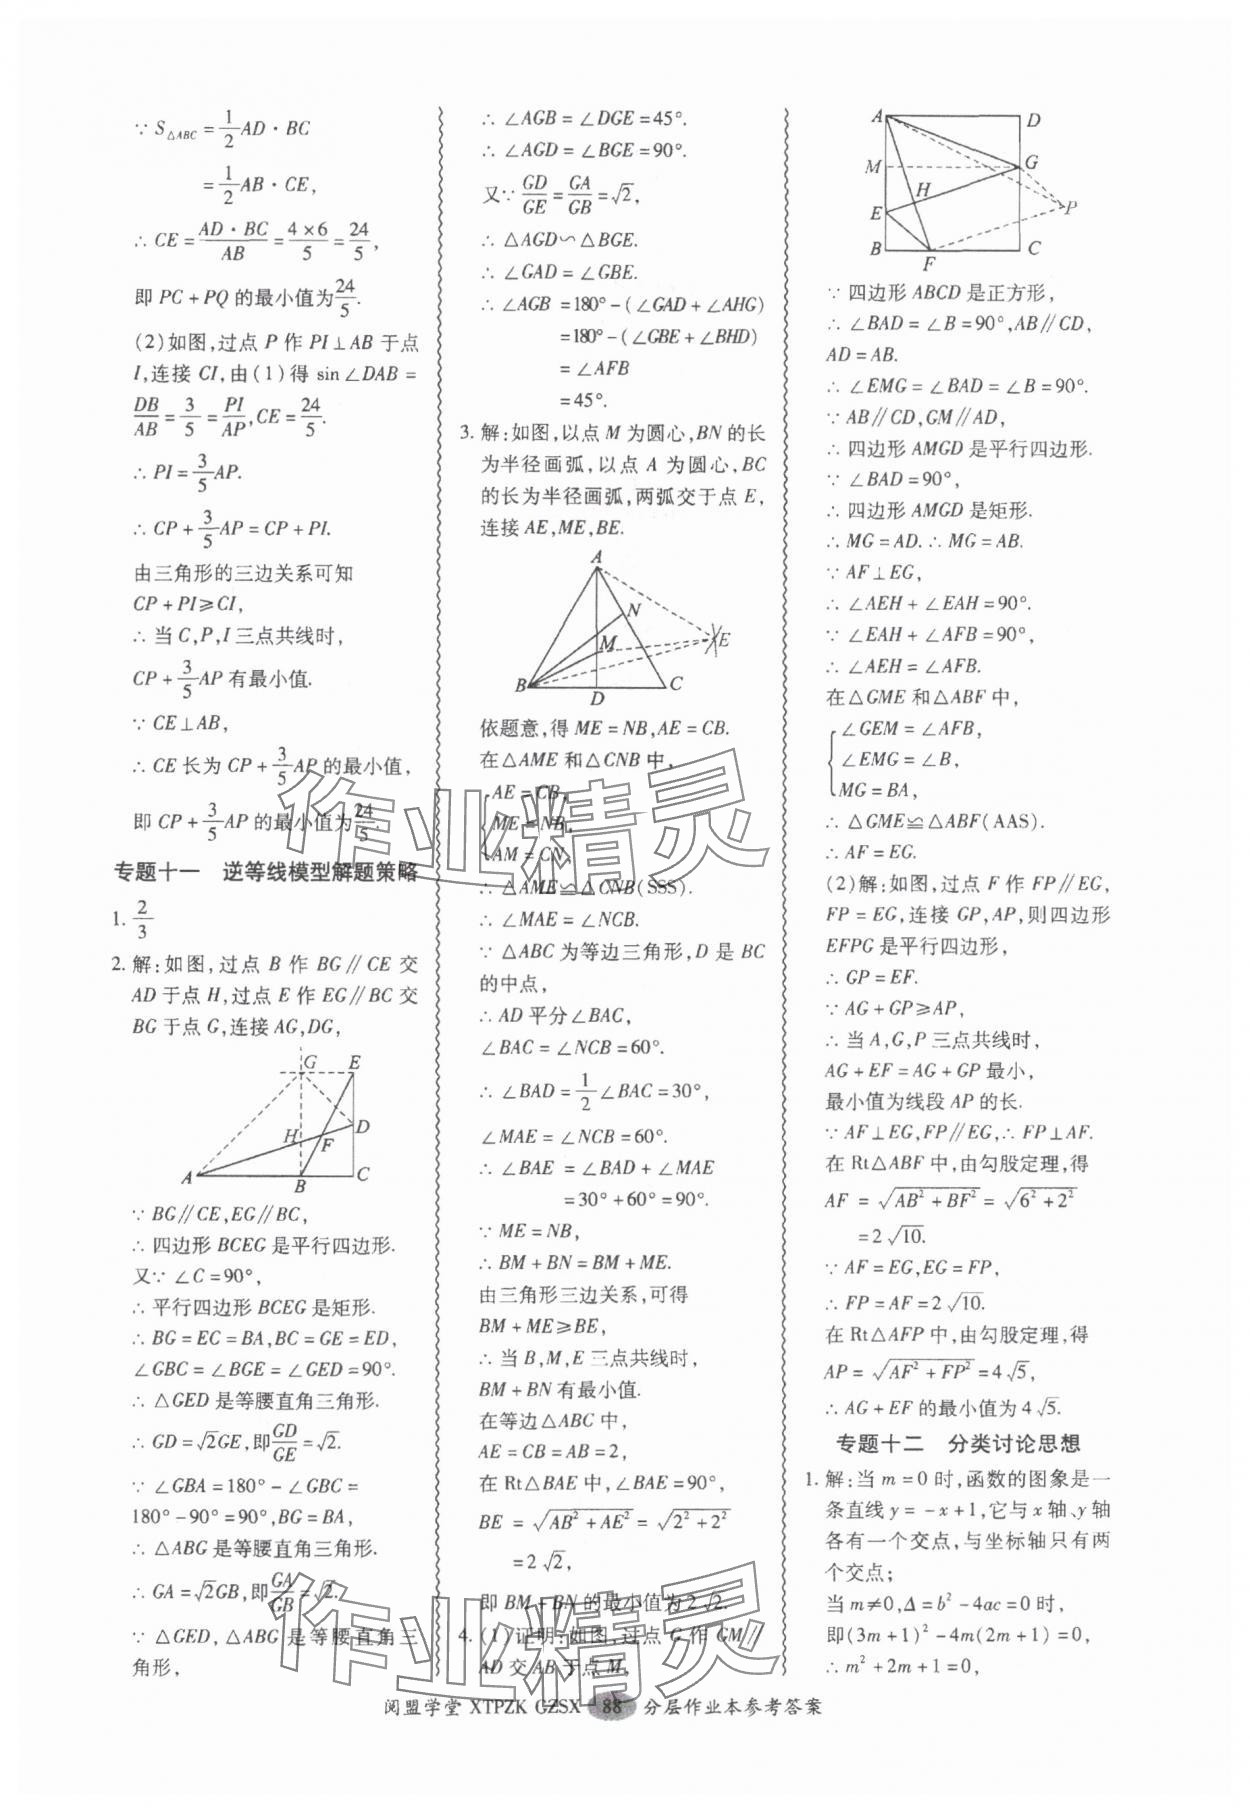 ∵ S△ABC = 1/2 AD · BC
= 1/2 AB · CE,
∴ CE = AD · BC/AB = 4×6/5 = 24/5,
即 PC + PQ 的最小值为 24/5.
(2)如图,过点 P 作 PI⊥AB 于点
I,连接 CI,由(1)得 sin∠DAB =
DB/AB = 3/5 = PI/AP, CE = 24/5.
∴ PI = 3/5 AP.
∴ CP + 3/5 AP = CP + PI.
由三角形的三边关系可知
CP + PI ≥ CI,
∴ 当 C,P,I 三点共线时,
CP + 3/5 AP 有最小值.
∵ CE⊥AB,
∴ CE 长为 CP + 3/5 AP 的最小值,
即 CP + 3/5 AP 的最小值为 24/5.
专题十一 逆等线模型解题策略
1. 2/3
2. 解:如图,过点 B 作 BG∥CE 交
AD 于点 H,过点 E 作 EG∥BC 交
BG 于点 G,连接 AG,DG,
G E
H D
F
A B C
∵ BG∥CE,EG∥BC,
∴ 四边形 BCEG 是平行四边形.
又∵ ∠C = 90°,
∴ 平行四边形 BCEG 是矩形.
∴ BG = EC = BA, BC = GE = ED,
∠GBC = ∠BGE = ∠GED = 90°.
∴ △GED 是等腰直角三角形.
∴ GD = √2GE,即 GD/GE = √2.
∵ ∠GBA = 180° − ∠GBC =
180° − 90° = 90°, BG = BA,
∴ △ABG 是等腰直角三角形.
∴ GA = √2GB,即 GA/GB = √2.
∵ △GED, △ABG 是等腰直角三
角形,
∴ ∠AGB = ∠DGE = 45°.
∴ ∠AGD = ∠BGE = 90°.
又∵ GD/GE = GA/GB = √2,
∴ △AGD∽△BGE.
∴ ∠GAD = ∠GBE.
∴ ∠AGB = 180° − (∠GAD + ∠AHG)
= 180° − (∠GBE + ∠BHD)
= ∠AFB
= 45°.
3. 解:如图,以点 M 为圆心,BN 的长
为半径画弧,以点 A 为圆心,BC
的长为半径画弧,两弧交于点 E,
连接 AE,ME,BE.
A
N
M E
B D C
依题意,得 ME = NB, AE = CB.
在△AME 和△CNB 中,
AE = CB,
ME = NB,
AM = CN,
∴ △AME≌△CNB(SSS).
∴ ∠MAE = ∠NCB.
∵ △ABC 为等边三角形,D 是 BC
的中点,
∴ AD 平分∠BAC,
∠BAC = ∠NCB = 60°.
∴ ∠BAD = 1/2 ∠BAC = 30°,
∠MAE = ∠NCB = 60°.
∴ ∠BAE = ∠BAD + ∠MAE
= 30° + 60° = 90°.
∵ ME = NB,
∴ BM + BN = BM + ME.
由三角形三边关系,可得
BM + ME ≥ BE,
∴ 当 B,M,E 三点共线时,
BM + BN 有最小值.
在等边△ABC 中,
AE = CB = AB = 2,
在 Rt△BAE 中,∠BAE = 90°,
BE = √(AB² + AE²) = √(2² + 2²)
= 2√2,
即 BM + BN 的最小值为 2√2.
4. (1)证明:如图,过点 G 作 GM∥
AD 交 AB 于点 M,
A D
M G
H
E P
B F C
∵ 四边形 ABCD 是正方形,
∴ ∠BAD = ∠B = 90°, AB∥CD,
AD = AB.
∴ ∠EMG = ∠BAD = ∠B = 90°.
∵ AB∥CD, GM∥AD,
∴ 四边形 AMGD 是平行四边形.
∵ ∠BAD = 90°,
∴ 四边形 AMGD 是矩形.
∴ MG = AD. ∴ MG = AB.
∵ AF⊥EG,
∴ ∠AEH + ∠EAH = 90°.
∵ ∠EAH + ∠AFB = 90°,
∴ ∠AEH = ∠AFB.
在△GME 和△ABF 中,
∠GEM = ∠AFB,
∠EMG = ∠B,
MG = BA,
∴ △GME≌△ABF(AAS).
∴ AF = EG.
(2)解:如图,过点 F 作 FP∥EG,
FP = EG,连接 GP,AP,则四边形
EFPG 是平行四边形,
∴ GP = EF.
∵ AG + GP ≥ AP,
∴ 当 A,G,P 三点共线时,
AG + EF = AG + GP 最小,
最小值为线段 AP 的长.
∵ AF⊥EG, FP∥EG, ∴ FP⊥AF.
在 Rt△ABF 中,由勾股定理,得
AF = √(AB² + BF²) = √(6² + 2²)
= 2√10.
∵ AF = EG, EG = FP,
∴ FP = AF = 2√10.
在 Rt△AFP 中,由勾股定理,得
AP = √(AF² + FP²) = 4√5,
∴ AG + EF 的最小值为 4√5.
专题十二 分类讨论思想
1. 解:当 m = 0 时,函数的图象是一
条直线 y = −x + 1,它与 x 轴、y 轴
各有一个交点,与坐标轴只有两
个交点;
当 m≠0, Δ = b² − 4ac = 0 时,
即 (3m + 1)² − 4m(2m + 1) = 0,
∴ m² + 2m + 1 = 0,
作业精灵
作业精灵
阅盟学堂 XTPZK GZSX 88 分层作业本参考答案